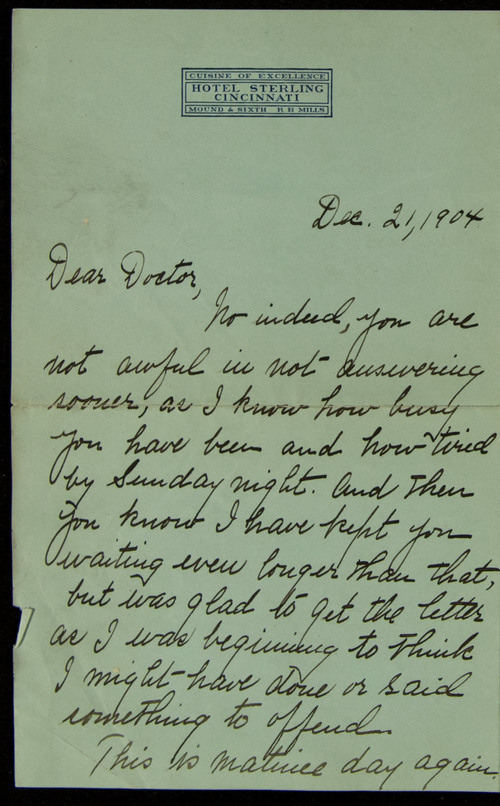 CUISINE OF EXCELLENCE
HOTEL STERLING
CINCINNATI
MOUND & SIXTH R H MILLS
Dec. 21, 1904
Dear Doctor,
No indeed, you are
not awful in not answering
sooner, as I know how busy
you have been and how tired
by Sunday night. And then
you know I have kept you
waiting even longer than that,
but was glad to get the letter
as I was beginning to think
I might have done or said
something to offend.
This is matinee day again.